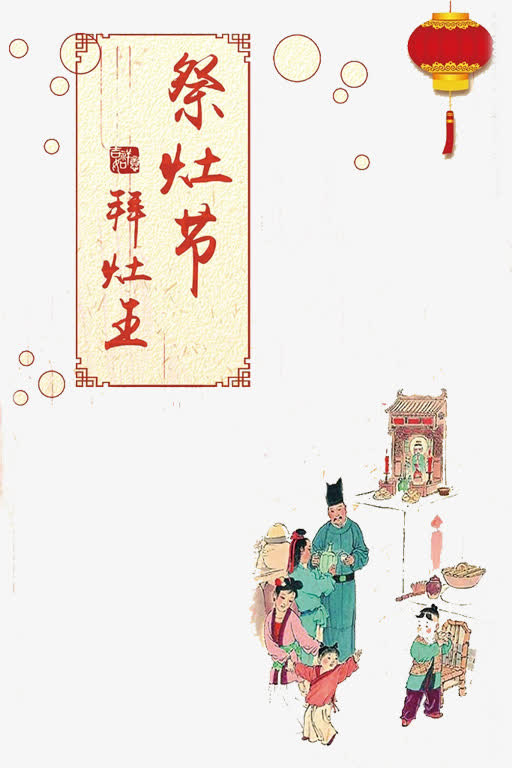 祭灶节
拜灶王